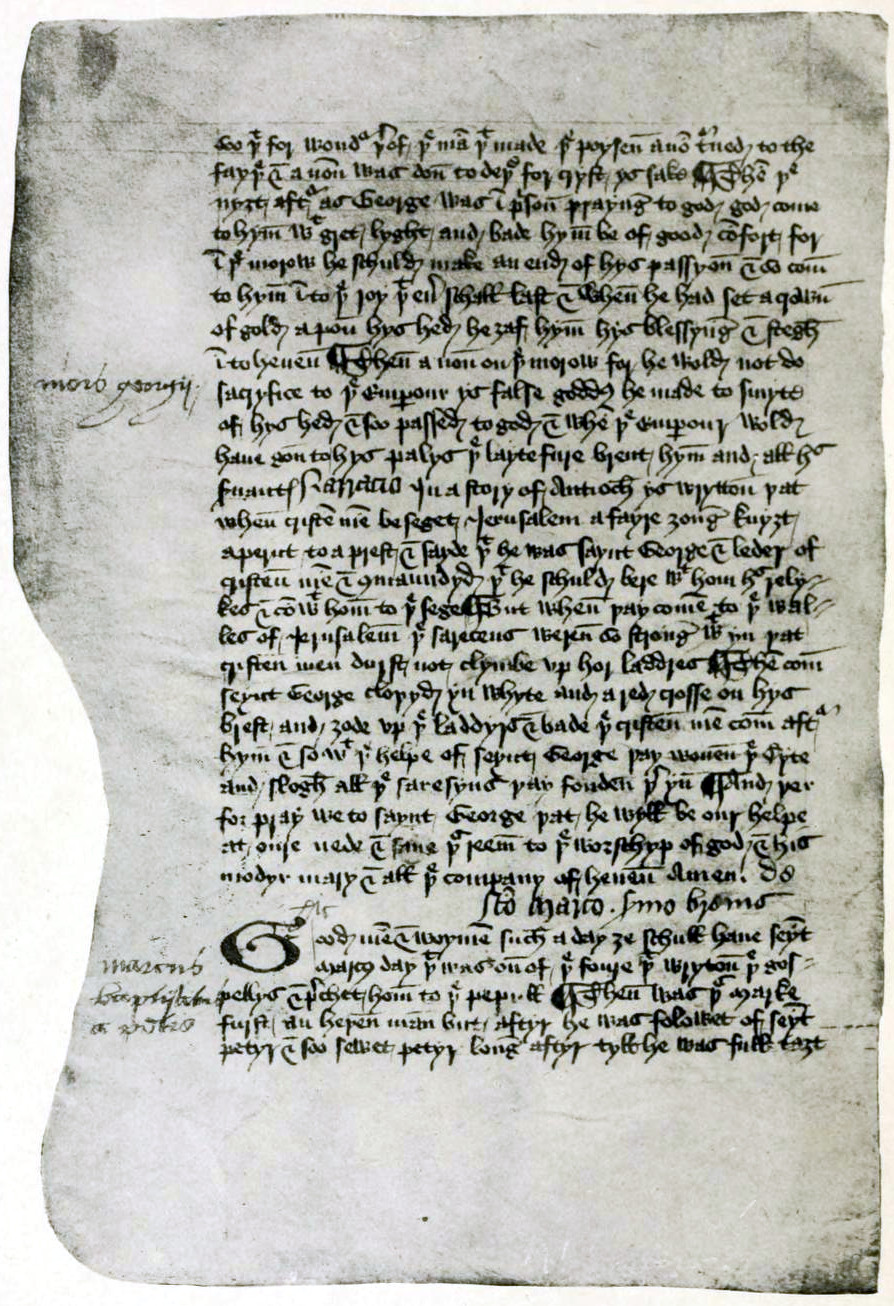 Soo þͭ for wondͬ þ'of þͤ mā þͭ made þͤ poysen anō t'ned to the
fayþͤ & anōn was don to deþͤ for cryst ys sake ¶ Then þͤ
nyʒt aftͬ as George was ī p'son prayng to god god come
to hym wͭ gret lyght and bade hym be of good cōfort for
ī þͤ morow he schuld make an end of hys passyon & so com
to hym īto þͤ joy þͭ eū schall last & when he had set a crown
of gold apon hys hed he ʒaf hym hys blessyng & stegh
īto heuen ¶ Then anon on þͤ morow for he wold not do
mors georgij
sacryfice to þͤ Emperour ys false goddꝭ he made to smyte
of hys hed & soo passed to god & whē þͤ Emperour wold
haue gon to hys palys þͤ layte fure brent hym and all hꝭ
s'uantꝭ Narracio In a story of Antioch ys wryton þat
when cristē mē beseget Jerusalem a fayre ʒong knyʒt
aperut to a prest & sayde þͭ he was saynt George & leder of
cristen mē & cōmaundyd þͭ he schuld bere wͭ hom hꝭ rely-
kes & cōwͭ hom to þͤ sege ¶ But when þay comē to þͤ wal-
les of Jerusalem þͤ sarecens weren so strong wͭ yn þat
cristen men durst not clymbe vp hor laddres ¶ Then com
seynt George cloþyd yn whyte and a red crosse on hys
brest and ʒode vp þͤ laddyrs & bade þͤ cristen mē com aftͬ
hym & so wͭ þͤ helpe of seynt George þay wonen þͤ Cyte
and slogh all þͤ saresyns þay fonden þ' yn ¶ And þer
for pray we to saynt George þat he wyll be our helpe
at oure nede & saue þͭ reem to þͤ worschyp of god & his
modyr mary & all þͤ company of heuen Amen. de
sco Marco. s'mo breuis
Good mē & woymē such a day ʒe schull haue seyt
marcus
marcꝰ day þͭ was on of þͤ foure þͭ wryton þͤ gos-
pellys & p'chet hom to þͤ pepull ¶ Then was þͭ Marke
furst an heþen man but aftyr he was folowet of seyt
petyr & soo sewet petyr long aftyr tyll he was full taʒt